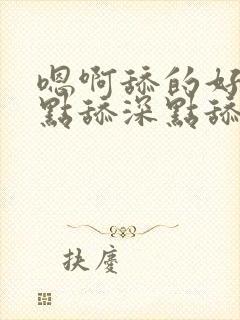 嗯啊舔的好
點舔深點舔
扶麼